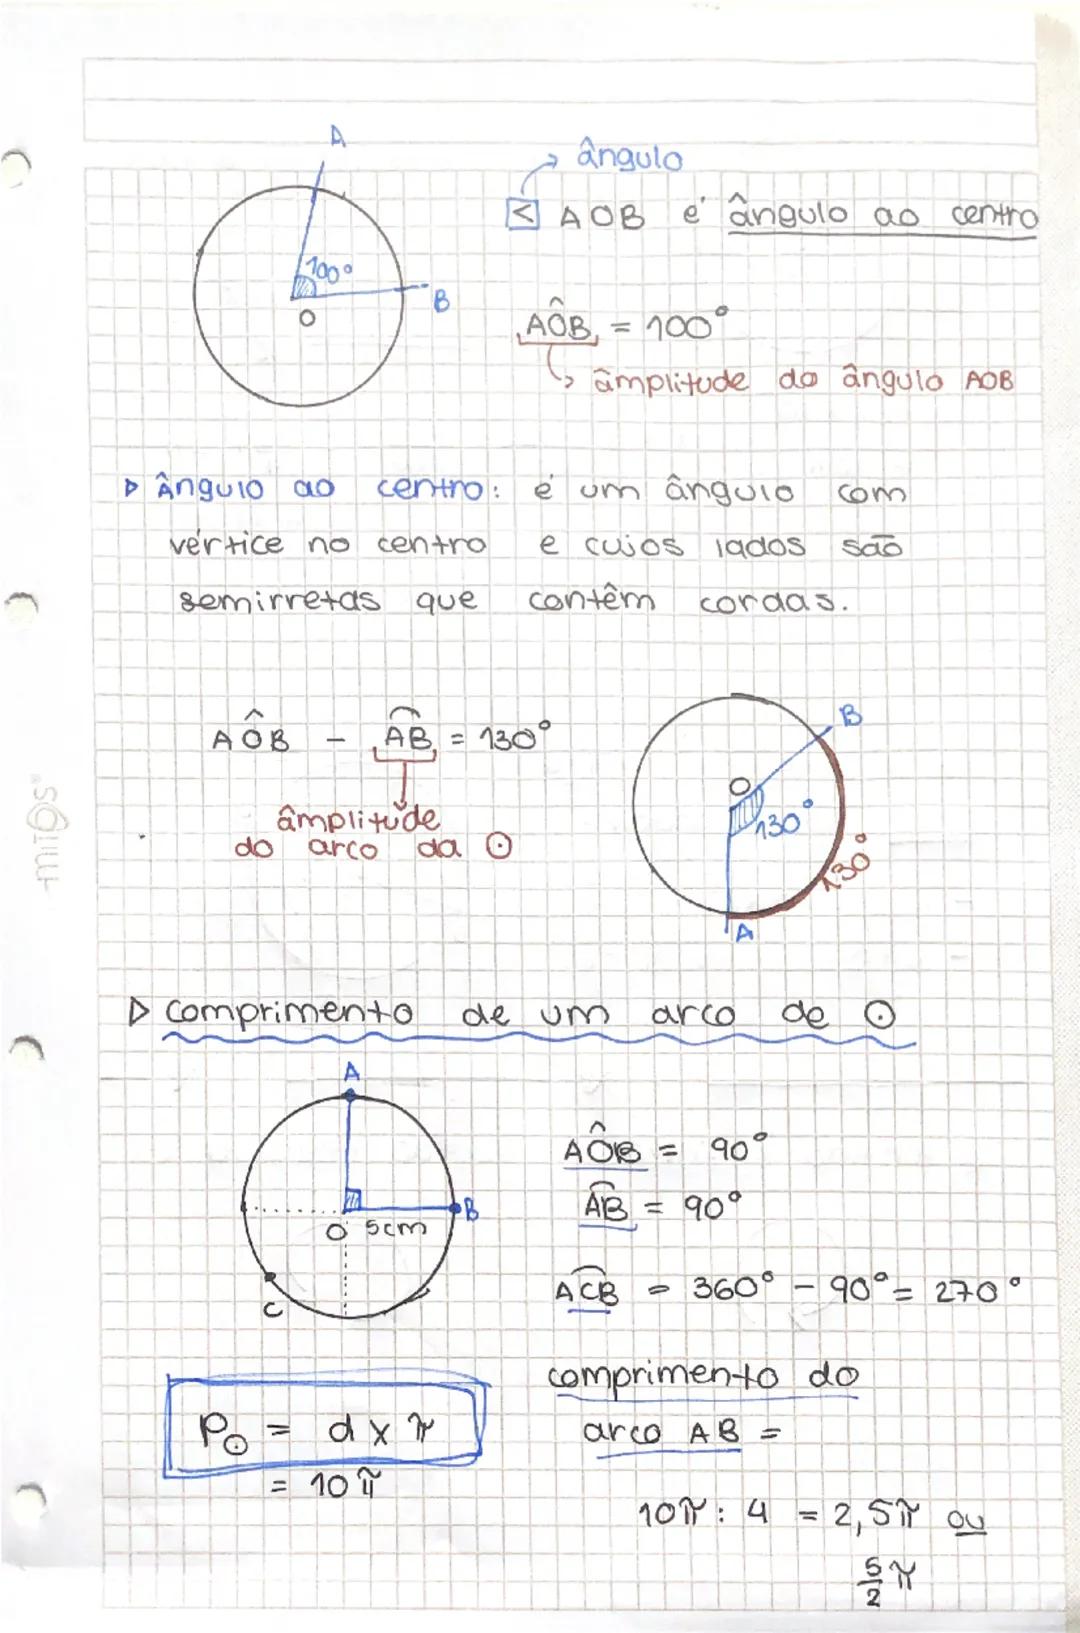 A
ângulo
< AOB é ângulo ao centro
100°
B
O
AÔB = 100°
âmplitude do ângulo AOB
▷ Ângulo ao centro: é um ângulo com
vértice no centro e cujos lados são
semirretas que contêm cordas.
AÔB - A͡B = 130°
âmplitude
do arco da ⊙
B
O
130°
130°
A
mitos
▷ comprimento de um arco de ⊙
A
B
O 5cm
C
AÔB = 90°
A͡B = 90°
A͡CB = 360° - 90° = 270°
P⊙ = d x π
= 10π
comprimento do
arco AB =
10π : 4 = 2,5π ou
5/2 π